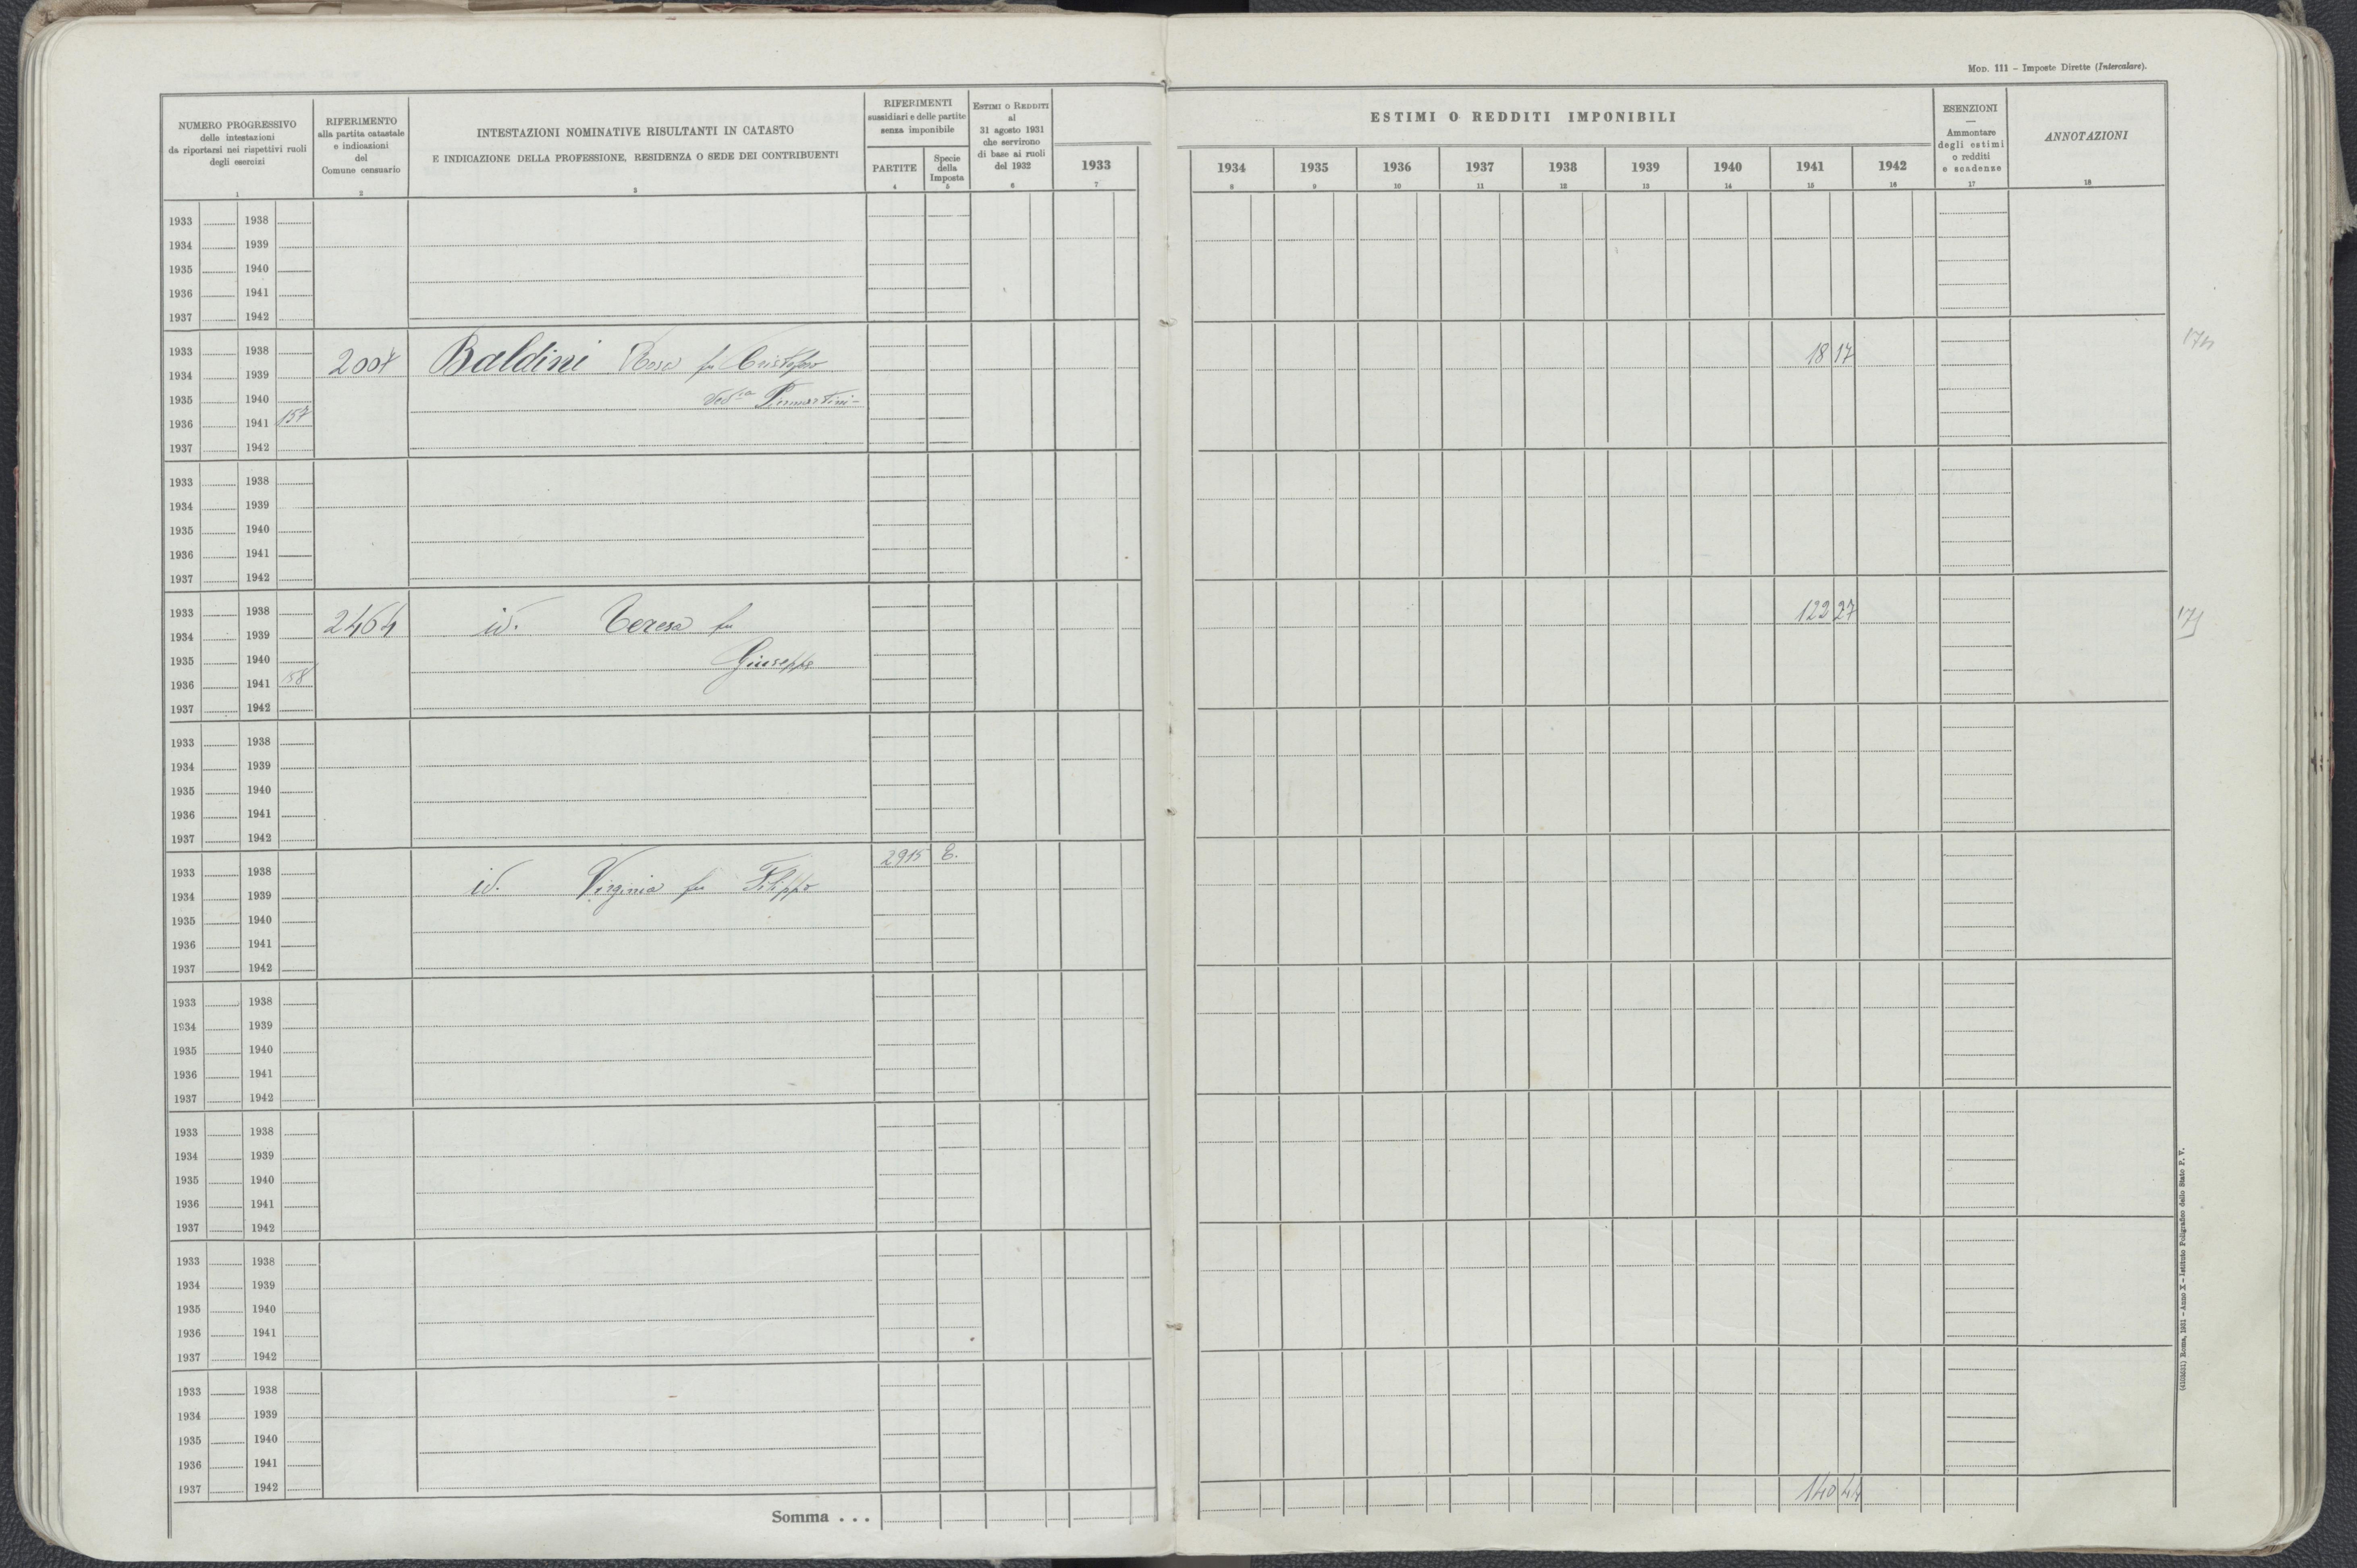 MOD. 111 – Imposte Dirette (Intercalare).
NUMERO PROGRESSIVO
delle intestazioni
da riportarsi nei rispettivi ruoli
degli esercizi
1
RIFERIMENTO
alla partita catastale
e indicazioni
del
Comune censuario
2
INTESTAZIONI NOMINATIVE RISULTANTI IN CATASTO
E INDICAZIONE DELLA PROFESSIONE, RESIDENZA O SEDE DEI CONTRIBUENTI
3
RIFERIMENTI
sussidiari e delle partite
senza imponibile
PARTITE
4
Specie
della
Imposta
5
ESTIMI O REDDITI
al
31 agosto 1931
che servirono
di base ai ruoli
del 1932
6
1933
7
ESTIMI O REDDITI IMPONIBILI
1934 1935 1936 1937 1938 1939 1940 1941 1942
8 9 10 11 12 13 14 15 16
ESENZIONI
—
Ammontare
degli estimi
o redditi
e scadenze
17
ANNOTAZIONI
18
1933 1938
1934 1939
1935 1940
1936 1941
1937 1942
1933 1938
2004 Baldini Rosa fu Cristoforo 18 17
1934 1939
1935 1940
1936 1941 157
1937 1942
1933 1938
1934 1939
1935 1940
1936 1941
1937 1942
1933 1938
2464 id. Teresa fu 122 27
1934 1939
1935 1940
Giuseppe
1936 1941 158
1937 1942
1933 1938
1934 1939
1935 1940
1936 1941
1937 1942
2915 E.
1933 1938
id. Virginia fu Filippo
1934 1939
1935 1940
1936 1941
1937 1942
1933 1938
1934 1939
1935 1940
1936 1941
1937 1942
1933 1938
1934 1939
1935 1940
1936 1941
1937 1942
1933 1938
1934 1939
1935 1940
1936 1941
1937 1942
1933 1938
1934 1939
1935 1940
1936 1941
1937 1942
140 44
Somma . . .
(4103551) Roma, 1931 – Anno X – Istituto Poligrafico dello Stato P. V.